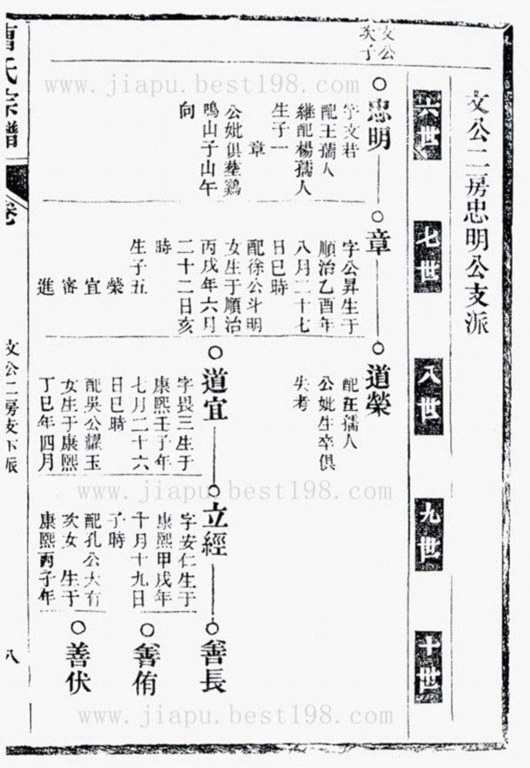 文公二房忠明公支派
六世
七世
八世
九世
十世
文公
次子
忠明
字文若
配王孺人
継配楊孺人
生子一
章
公妣俱葬鷄
鳴山子山午
向
章
字公昇生于
順治乙酉年
八月二十七
日巳時
配徐公斗明
女生于順治
丙戌年六月
二十二日亥
時
生子五
榮
宜
審
進
道榮
配汪孺人
公妣生卒俱
失考
道宜
字畏三生于
康熙壬子年
七月二十六
日巳時
配吳公耀玉
女生于康熙
丁巳年四月
立經
字安仁生于
康熙甲戌年
十月十九日
子時
配孔公大有
次女 生于
康熙丙子年
善長
善侑
善伏
曹氏宗譜
卷
文公二房支下派
八
www.jiapu.best198.com
www.jiapu.best198.com
www.jiapu.best198.com